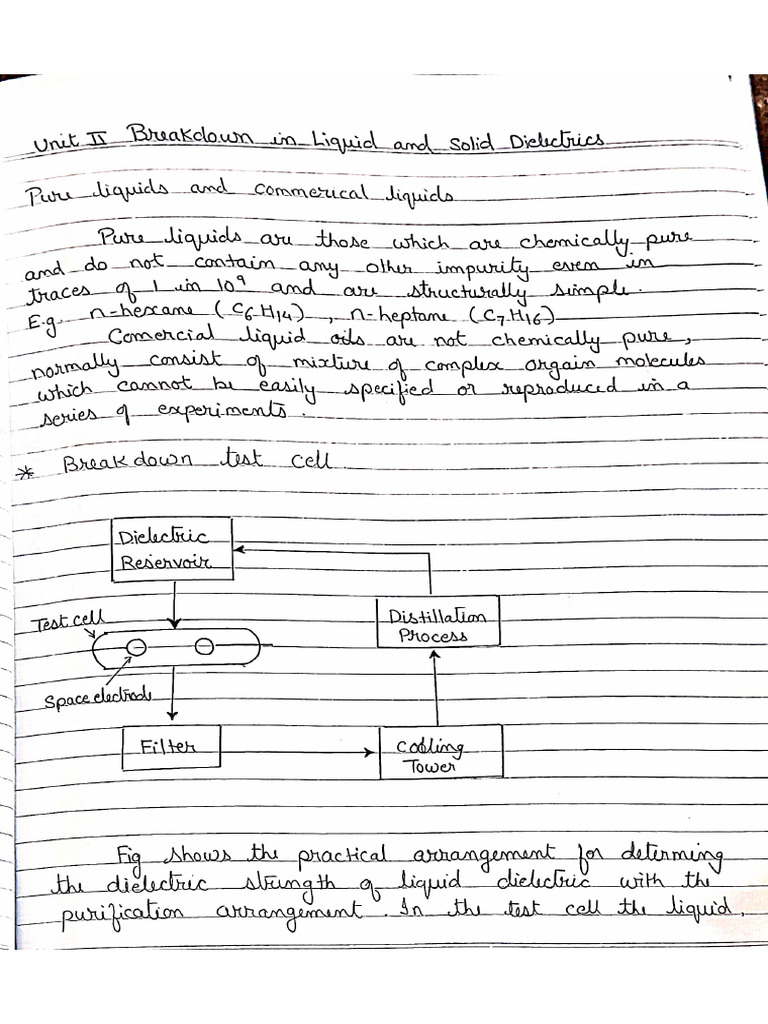 Unit II Breakdown in Liquid and Solid Dielectrics
Pure liquids and commerical liquids
Pure liquids are those which are chemically pure
and do not contain any other impurity even in
traces of 1 in 10⁹ and are structurally simple.
E.g. n-hexane (C₆H₁₄), n-heptane (C₇H₁₆)
Comercial liquid oils are not chemically pure,
normally consist of mixture of complex orgain molecules
which cannot be easily specified or reproduced in a
series of experiments.
* Breakdown test cell
Dielectric
Reservoir
Test cell
Space electrode
Filter
Distillation
Process
Cooling
Tower
Fig shows the practical arrangement for determing
the dielectric strength of liquid dielectric with the
purification arrangement. In the test cell the liquid,